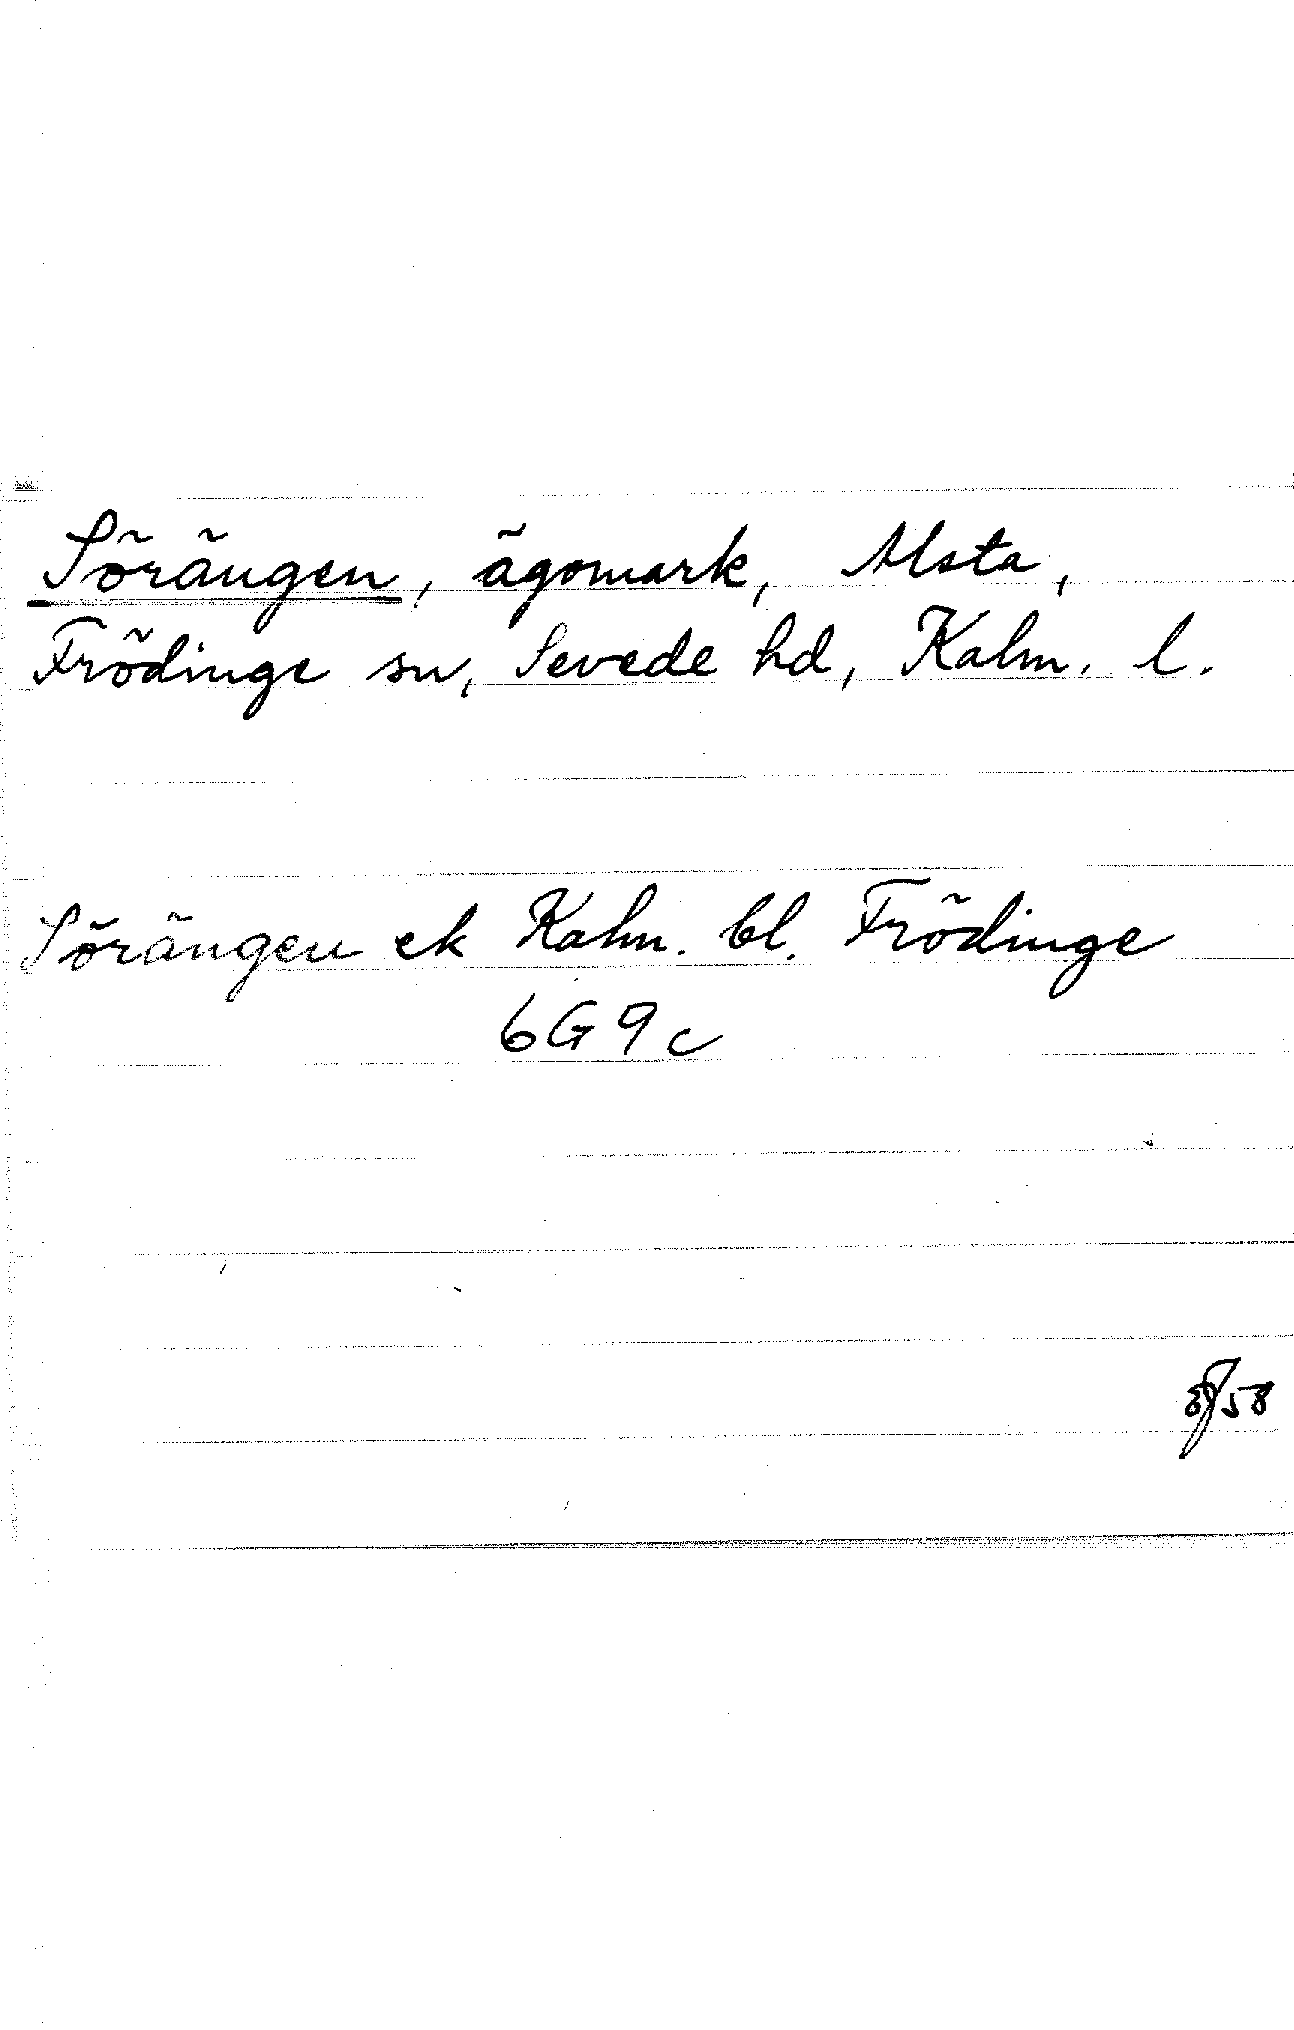 Sörängen, ägomark, Alsta,
Frödinge sn, Sevede hd, Kalm. l.
Sörängen ek Kalm. bl. Frödinge
6G 9c